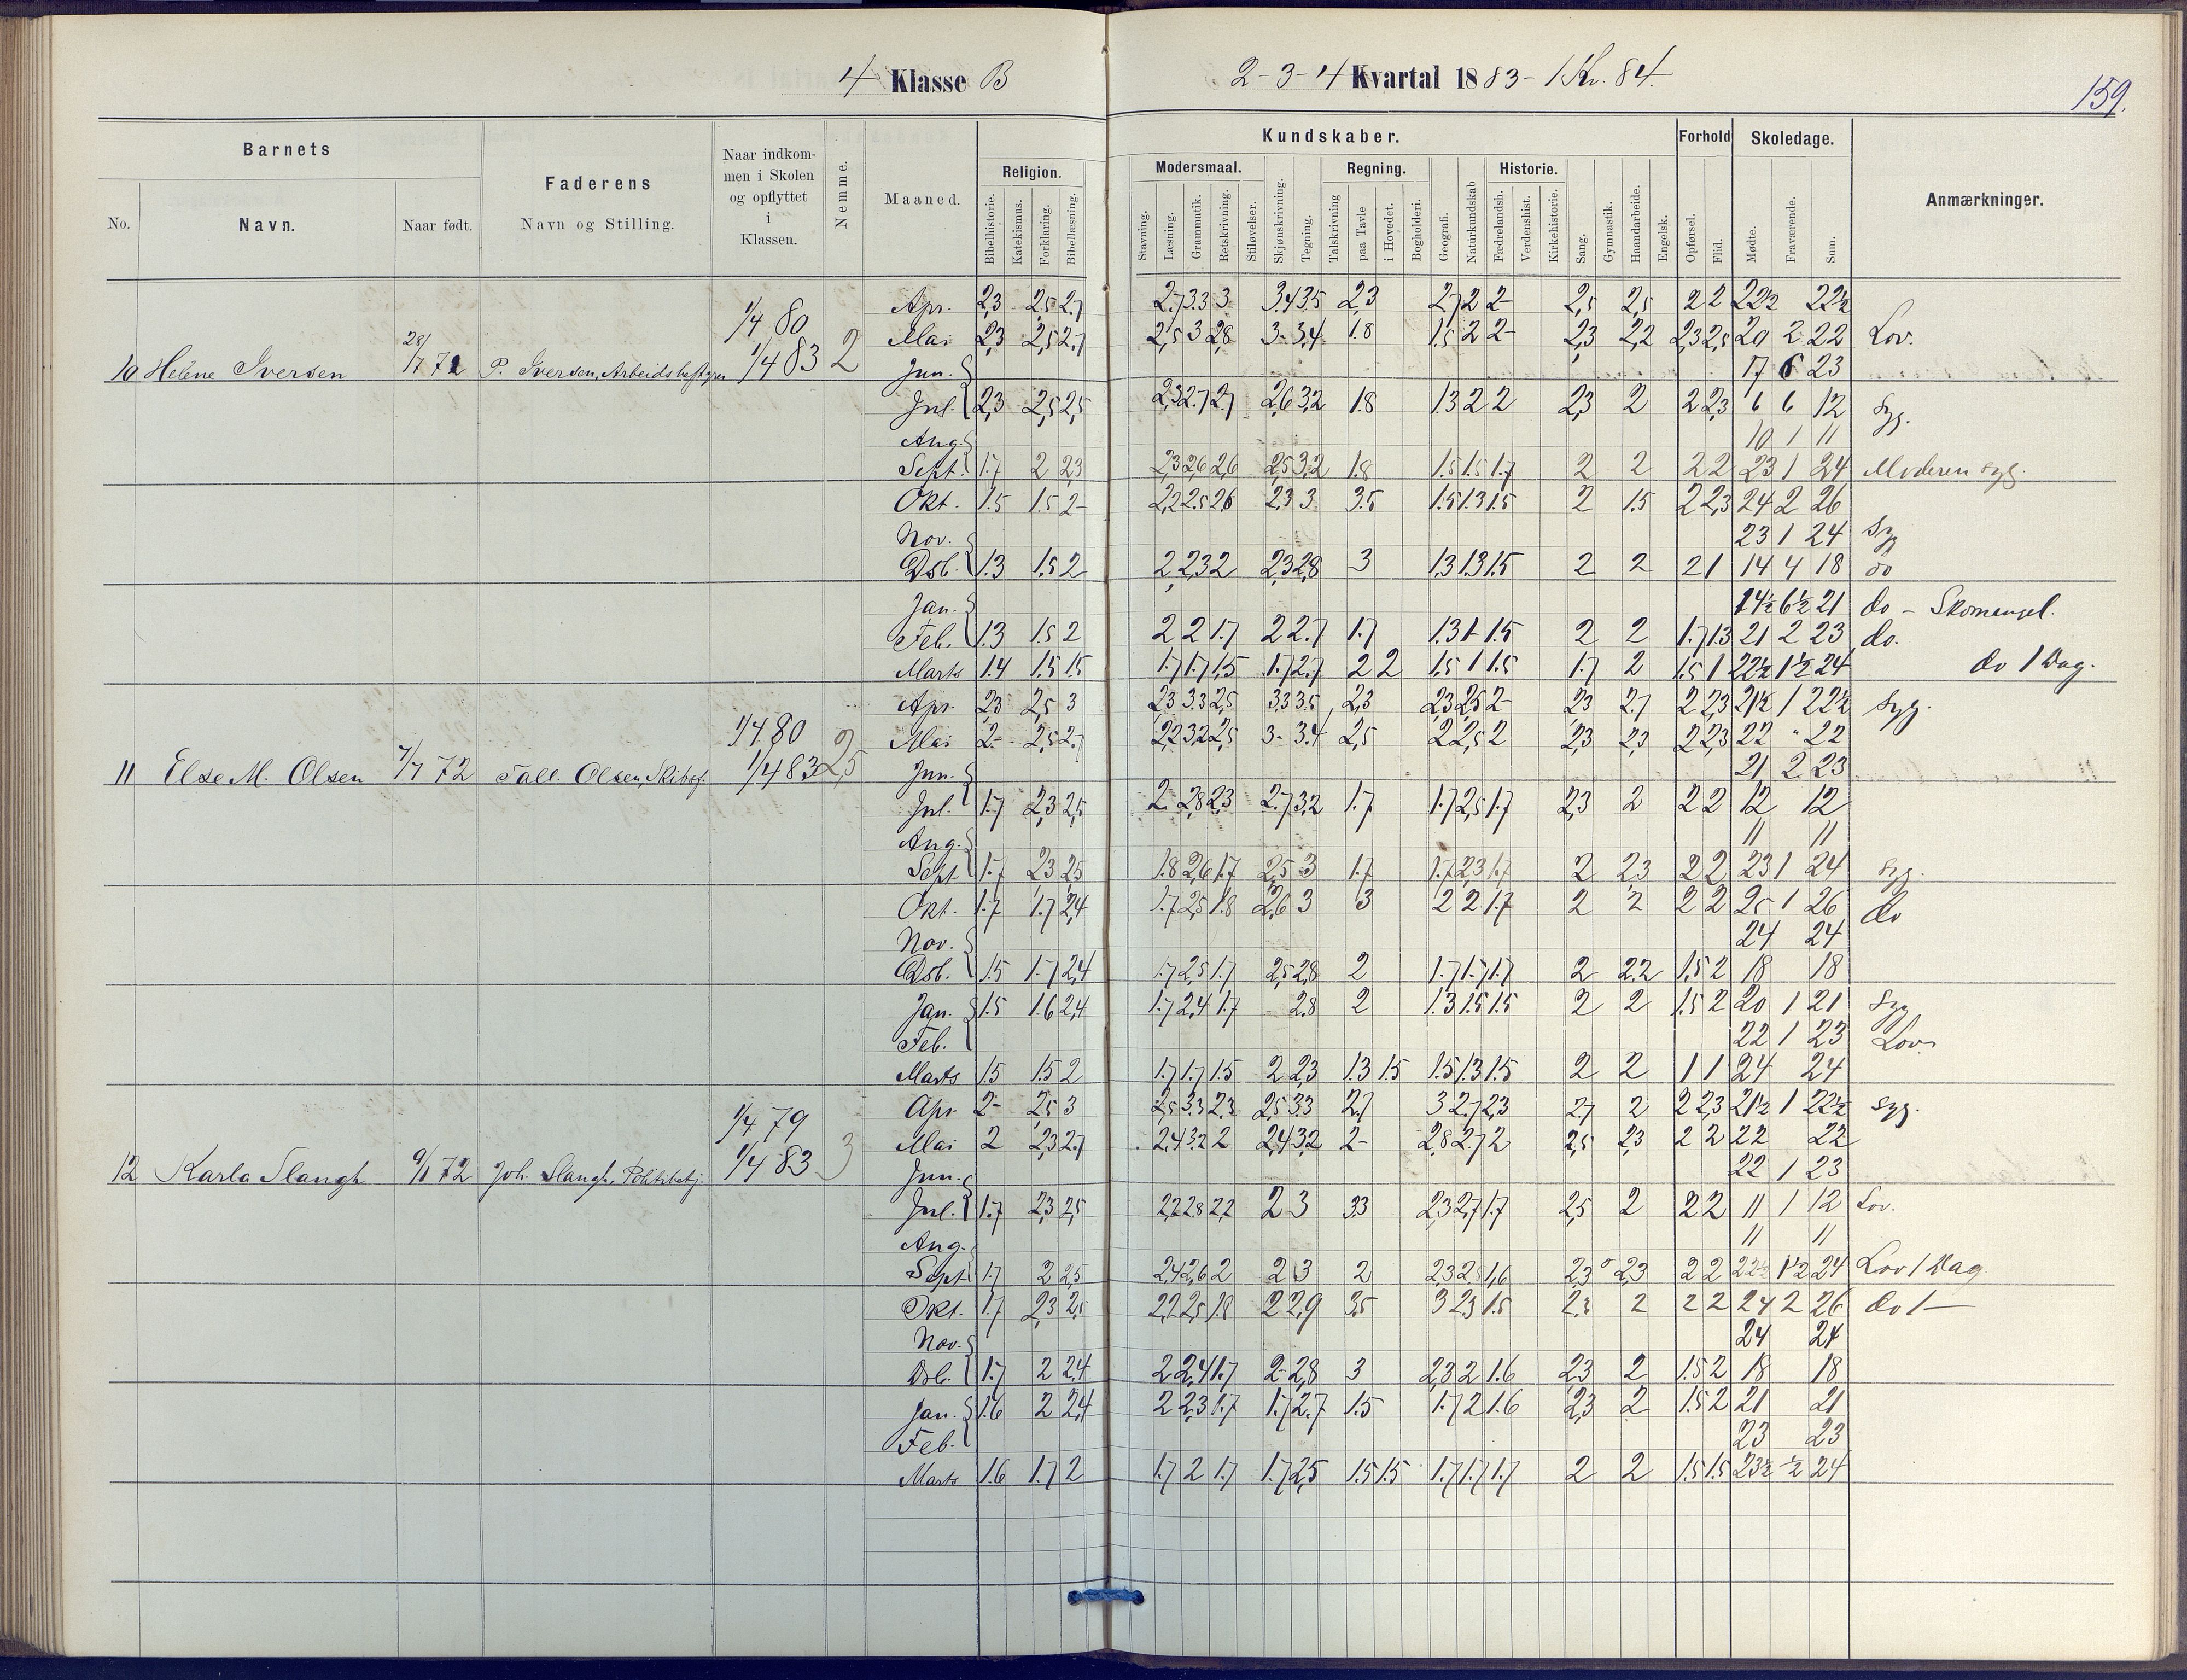 4 Klasse B
2-3-4 Kvartal 1883 - 1 Kv. 84.
159.
Barnets
No.
Navn.
Naar født.
Faderens
Navn og Stilling.
Naar indkommen i Skolen og opflyttet i Klassen.
Nemme.
Maaned.
Kundskaber.
Religion.
Bibelhistorie. Katekismus. Forklaring. Bibellæsning.
Modersmaal.
Stavning. Læsning. Grammatik. Retskrivning. Stiløvelser.
Skjønskrivning. Tegning.
Regning.
Talskrivning paa Tavle i Hovedet. Bogholderi.
Geografi. Naturkundskab
Historie.
Fædrelandsh. Verdenshist. Kirkehistorie.
Sang. Gymnastik. Haandarbeide. Engelsk.
Forhold
Opførsel. Flid.
Skoledage.
Mødte. Fraværende. Sum.
Anmærkninger.
10 Helene Iversen 28/7 72 P. Iversen, Arbeidsbestyrer 1/4 80 1/4 83 2
Apr. 2,3 2,5 2,7 2,7 3,3 3 3,4 3,5 2,3 2,7 2 2- 2,5 2,5 2 2 22½ 22½
Mai 2,3 2,5 2,7 2,5 3 2,8 3- 3,4 1.8 1.5 2 2- 2,3 2,2 2,3 2,5 20 2 22 Lov.
Jun. 17 6 23
Jul. 2,3 2,5 2,5 2,3 2,7 2,7 2,6 3,2 1.8 1.3 2 2 2,3 2 2 2,3 6 6 12 Syg.
Aug. 10 1 11
Sept. 1.7 2 2,3 2,3 2,6 2,6 2,5 3,2 1.8 1.5 1.5 1.7 2 2 2 2 23 1 24 Moderen syg.
Okt. 1.5 1.5 2- 2,2 2.5 2,6 2,3 3 3.5 1.5 1.3 1.5 2 1.5 2 2,3 24 2 26
Nov. 23 1 24 Syg
Dsb. 1.3 1.5 2 2 2,3 2 2,3 2,8 3 1.3 1.3 1.5 2 2 2 1 14 4 18 do
Jan. 14½ 6½ 21 do - Skomangel.
Feb. 1.3 1.5 2 2 2 1.7 2 2.7 1.7 1.3 1- 1.5 2 2 1.7 1.3 21 2 23 do.
Marts 1.4 1.5 1.5 1.7 1.7 1.5 1.7 2.7 2 2 1.5 1 1.5 1.7 2 1.5 1 22½ 1½ 24 do 1 Dag.
11 Else M. Olsen 7/7 72 Tall. Olsen, Skibsf. 1/4 80 1/4 83 2,5
Apr 2,3 2,5 3 2,3 3.3 2,5 3,3 3.5 2,3 2,3 2,5 2- 2,3 2.7 2 2,3 21½ 1 22½ Syg.
Mai 2- 2,5 2.7 2,2 3,2 2,5 3- 3.4 2,5 2 2,5 2 2,3 2,3 2 2,3 22 " 22
Jun. 21 2 23
Jul. 1.7 2,3 2,5 2 2,8 2,3 2.7 3,2 1.7 1.7 2,5 1.7 2,3 2 2 2 12 12
Aug. 11 11
Sept 1.7 2,3 2,5 1.8 2,6 1.7 2,5 3 1.7 1.7 2,3 1.7 2 2,3 2 2 23 1 24 Syg.
Okt. 1.7 1.7 2,4 1.7 2,5 1.8 2,6 3 3 2 2 1.7 2 2 2 2 25 1 26 do
Nov. 24 24
Dsb. 1.5 1.7 2,4 1.7 2,5 1.7 2,5 2,8 2 1.7 1.7 1.7 2 2.2 1.5 2 18 18
Jan. 1.5 1.6 2,4 1.7 2,4 1.7 2.8 2 1.3 1.5 1.5 2 2 1.5 2 20 1 21 Syg
Feb. 22 1 23 Lov.
Marts 1.5 1.5 2 1.7 1.7 1.5 2 2,3 1.3 1.5 1.5 1.3 1.5 2 2 1 1 24 24
12 Karla Slangh 9/1 72 Joh. Slangh, Politibetj. 1/4 79 1/4 83 3
Apr. 2- 2,5 3 2,5 3.3 2,3 2,5 3,3 2.7 3 2.7 2,3 2.7 2 2 2,3 21½ 1 22½ Syg.
Mai 2 2,3 2.7 2,4 3.2 2 2,4 3,2 2- 2,8 2.7 2 2,5 2,3 2 2 22 22
Jun. 22 1 23
Jul. 1.7 2,3 2,5 2,2 2.8 2,2 2 3 3.3 2,3 2,7 1.7 2,5 2 2 2 11 1 12 Lov.
Aug. 11 11
Sept 1.7 2 2,5 2,4 2,6 2 2 3 2 2,3 2,5 1,6 2,3 2,3 2 2 22½ 1½ 24 Lov 1 Dag
Okt. 1.7 2,3 2,5 2,2 2,5 1.8 2 2,9 3.5 3 2,3 1.5 2,3 2 2 2 24 2 26 do 1 —
Nov. 24 24
Dsb. 1.7 2 2,4 2 2,4 1.7 2- 2,8 3 2,3 2 1.6 2,3 2 1.5 2 18 18
Jan. 1.6 2 2,4 2 2,3 1.7 1.7 2.7 1.5 1.7 2 1.6 2,3 2 1.5 2 21 21
Feb. 23 23
Marts 1.6 1.7 2 1.7 2 1.7 1.7 2,5 1.5 1.5 1.7 1.7 1.7 2 2 1.5 1.5 23½ ½ 24